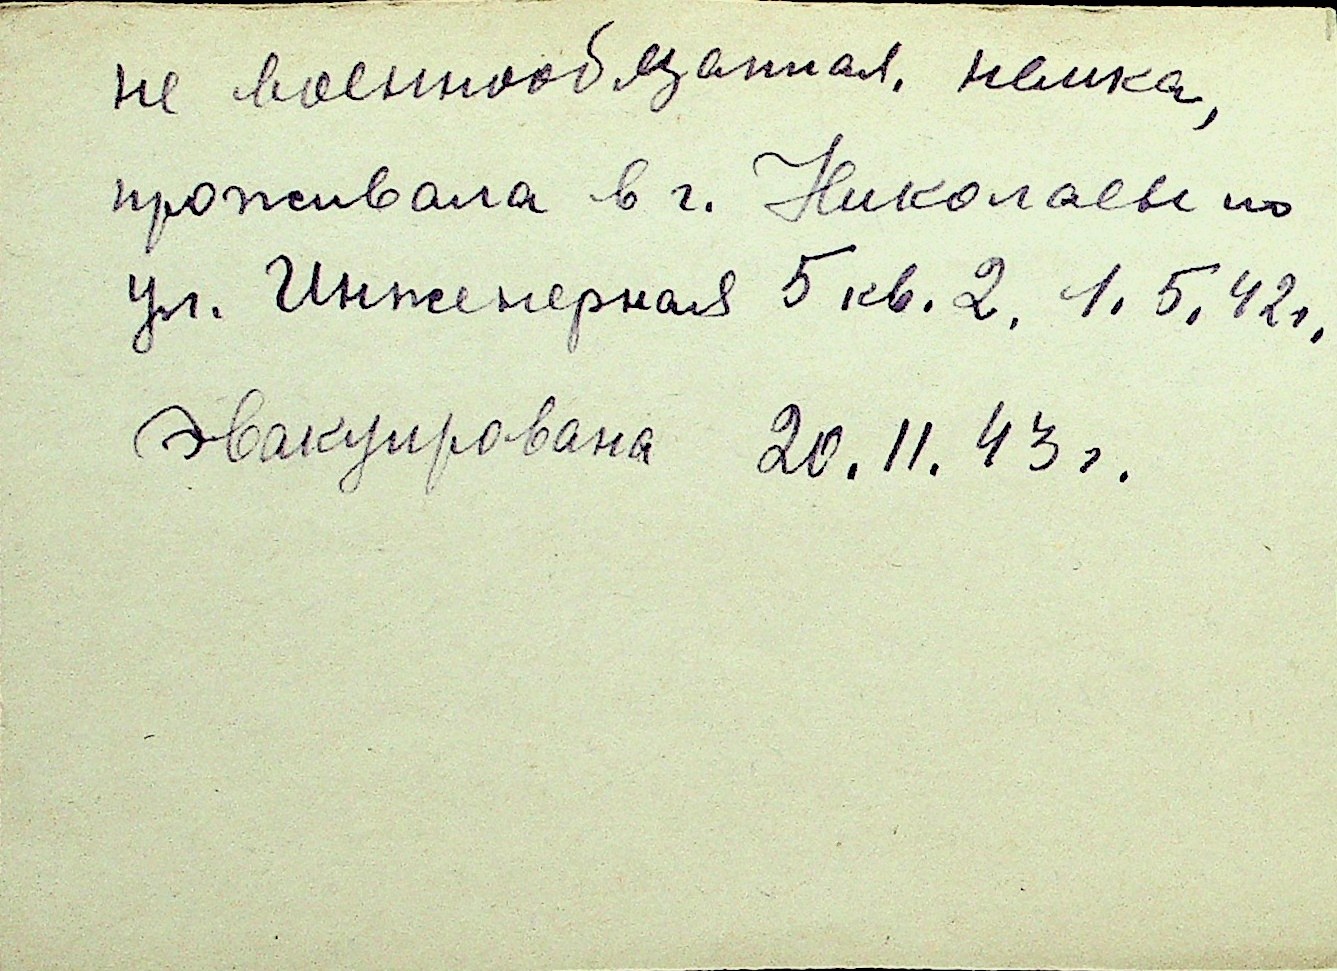 не военнообязанная. немка,
проживала в г. Николаеве по
ул. Инженерная 5 кв. 2. 1.5.42г.
Эвакуирована 20.11.43г.